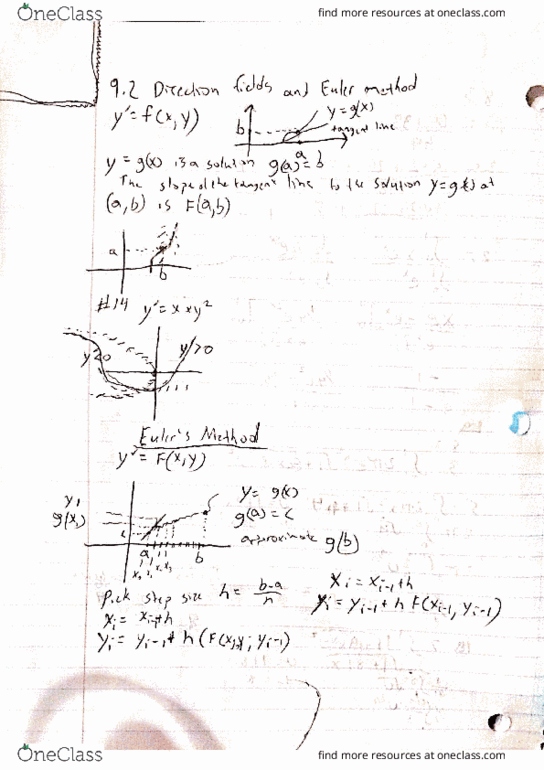 OneClass
find more resources at oneclass.com
9.2 Direction fields and Euler method
y' = f(x, y)
b
a
y = g(x)
tangent line
y = g(x) is a solution g(a) = b
The slope of the tangent line to the solution y = g(x) at
(a, b) is F(a, b)
a
b
#14 y' = x + xy²
y'<0
y'>0
Euler's Method
y' = F(x, y)
y₁
g(x₁)
c
a
b
y = g(x)
g(a) = c
approximate g(b)
Pick step size h = (b-a)/n
xᵢ = xᵢ₋₁ + h
yᵢ = yᵢ₋₁ + h (F(xᵢ₋₁, yᵢ₋₁)
xᵢ = xᵢ₋₁ + h
yᵢ = yᵢ₋₁ + h F(xᵢ₋₁, yᵢ₋₁)
OneClass
find more resources at oneclass.com